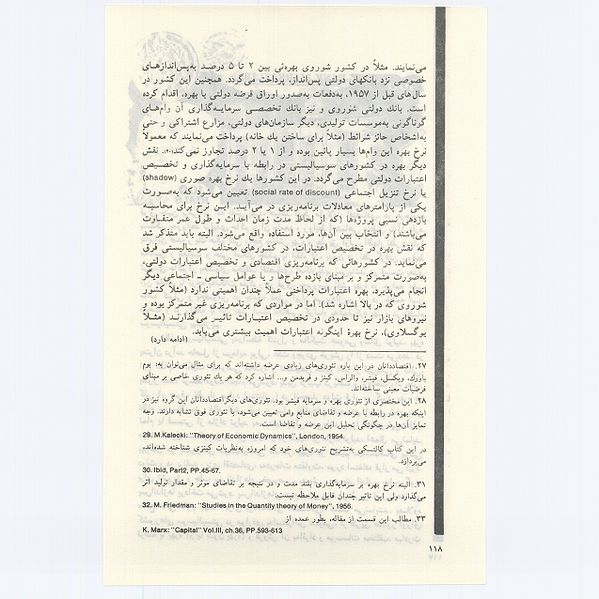 می‌نمایند. مثلاً در کشور شوروی بهره‌ئی بین ۲ تا ۵ درصد به‌پس‌اندازهای
خصوصی نزد بانکهای دولتی پس‌انداز، پرداخت می‌گردد. همچنین این کشور در
سال‌های قبل از ۱۹۵۷، به‌دفعات به‌صدور اوراق قرضه دولتی با بهره، اقدام کرده
است. بانک دولتی شوروی و نیز بانک تخصصی سرمایه‌گذاری آن وام‌های
گوناگونی به‌موسسات تولیدی، دیگر سازمان‌های دولتی، مزارع اشتراکی و حتی
به‌اشخاص حائز شرائط (مثلاً برای ساختن یك خانه) پرداخت می‌نمایند که معمولاً
نرخ بهره این وام‌ها بسیار پائین بوده و از ۱ یا ۲ درصد تجاوز نمی‌کند. نقش
دیگر بهره در کشورهای سوسیالیستی در رابطه با سرمایه‌گذاری و تخصیص
اعتبارات دولتی مطرح می‌گردد. در این کشورها یك نرخ بهره صوری (shadow)
یا نرخ تنزیل اجتماعی (social rate of discount) تعیین می‌شود که به‌صورت
یکی از پارامترهای معادلات برنامه‌ریزی در می‌آیند. این نرخ برای محاسبه
بازدهی نسبی پروژه‌ها (که از لحاظ مدت زمان احداث و طول عمر متفاوت
می‌باشند) و انتخاب بین آن‌ها، مورد استفاده واقع می‌شود. البته باید متذکر شد
که نقش بهره در تخصیص اعتبارات، در کشورهای مختلف سوسیالیستی فرق
می‌نماید. در کشورهائی که برنامه‌ریزی اقتصادی و تخصیص اعتبارات دولتی،
به‌صورت متمرکز و بر مبنای بازده طرح‌ها و یا عوامل سیاسی ـ اجتماعی دیگر
انجام می‌پذیرد، بهره اعتبارات پرداختی عملاً چندان اهمیتی ندارد (مثلاً کشور
شوروی که در بالا اشاره شد)؛ اما در مواردی که برنامه‌ریزی غیر متمرکز بوده و
نیروهای بازار نیز تا حدودی در تخصیص اعتبارات تاثیر می‌گذارند (مثلاً
یوگسلاوی)، نرخ بهرهٔ اینگونه اعتبارات اهمیت بیشتری می‌یابد.
(ادامه دارد)
۲۷. اقتصاددانان در این باره تئوری‌های زیادی عرضه داشته‌اند که برای مثال می‌توان به: بوم
باورك، ویکسل، فیشر، والراس، کینز و فریدمن و... اشاره کرد که هر یك تئوری خاصی بر مبنای
فرضیات معینی ساخته‌اند.
۲۸. این مختصری از تئوری بهره و سرمایه فیشر بود. تئوری‌های دیگر اقتصاددانان این گروه نیز در
اینکه بهره در رابطه با عرضه و تقاضای منابع وامی تعیین می‌شود، با تئوری فوق تشابه دارند. وجه
تمایز آن‌ها در چگونگی تحلیل این عرضه و تقاضا است.
29. M.Kalecki: "Theory of Economic Dynamics", London, 1954.
در این کتاب کالتسکی به‌تشریح تئوری‌های خود که امروزه به‌نظریات کینزی شناخته شده‌اند،
می‌پردازد.
30. Ibid, Part2, PP.45-67.
۳۱. البته نرخ بهره بر سرمایه‌گذاری بلند مدت و در نتیجه بر تقاضای موثر و مقدار تولید اثر
می‌گذارد ولی این تاثیر چندان قابل ملاحظه نیست.
32. M. Friedman: "Studies in the Quantity theory of Money", 1956.
۳۳. مطالب این قسمت از مقاله، بطور عمده از
K. Marx: "Capital" Vol.III, ch.36, PP.593-613
۱۱۸